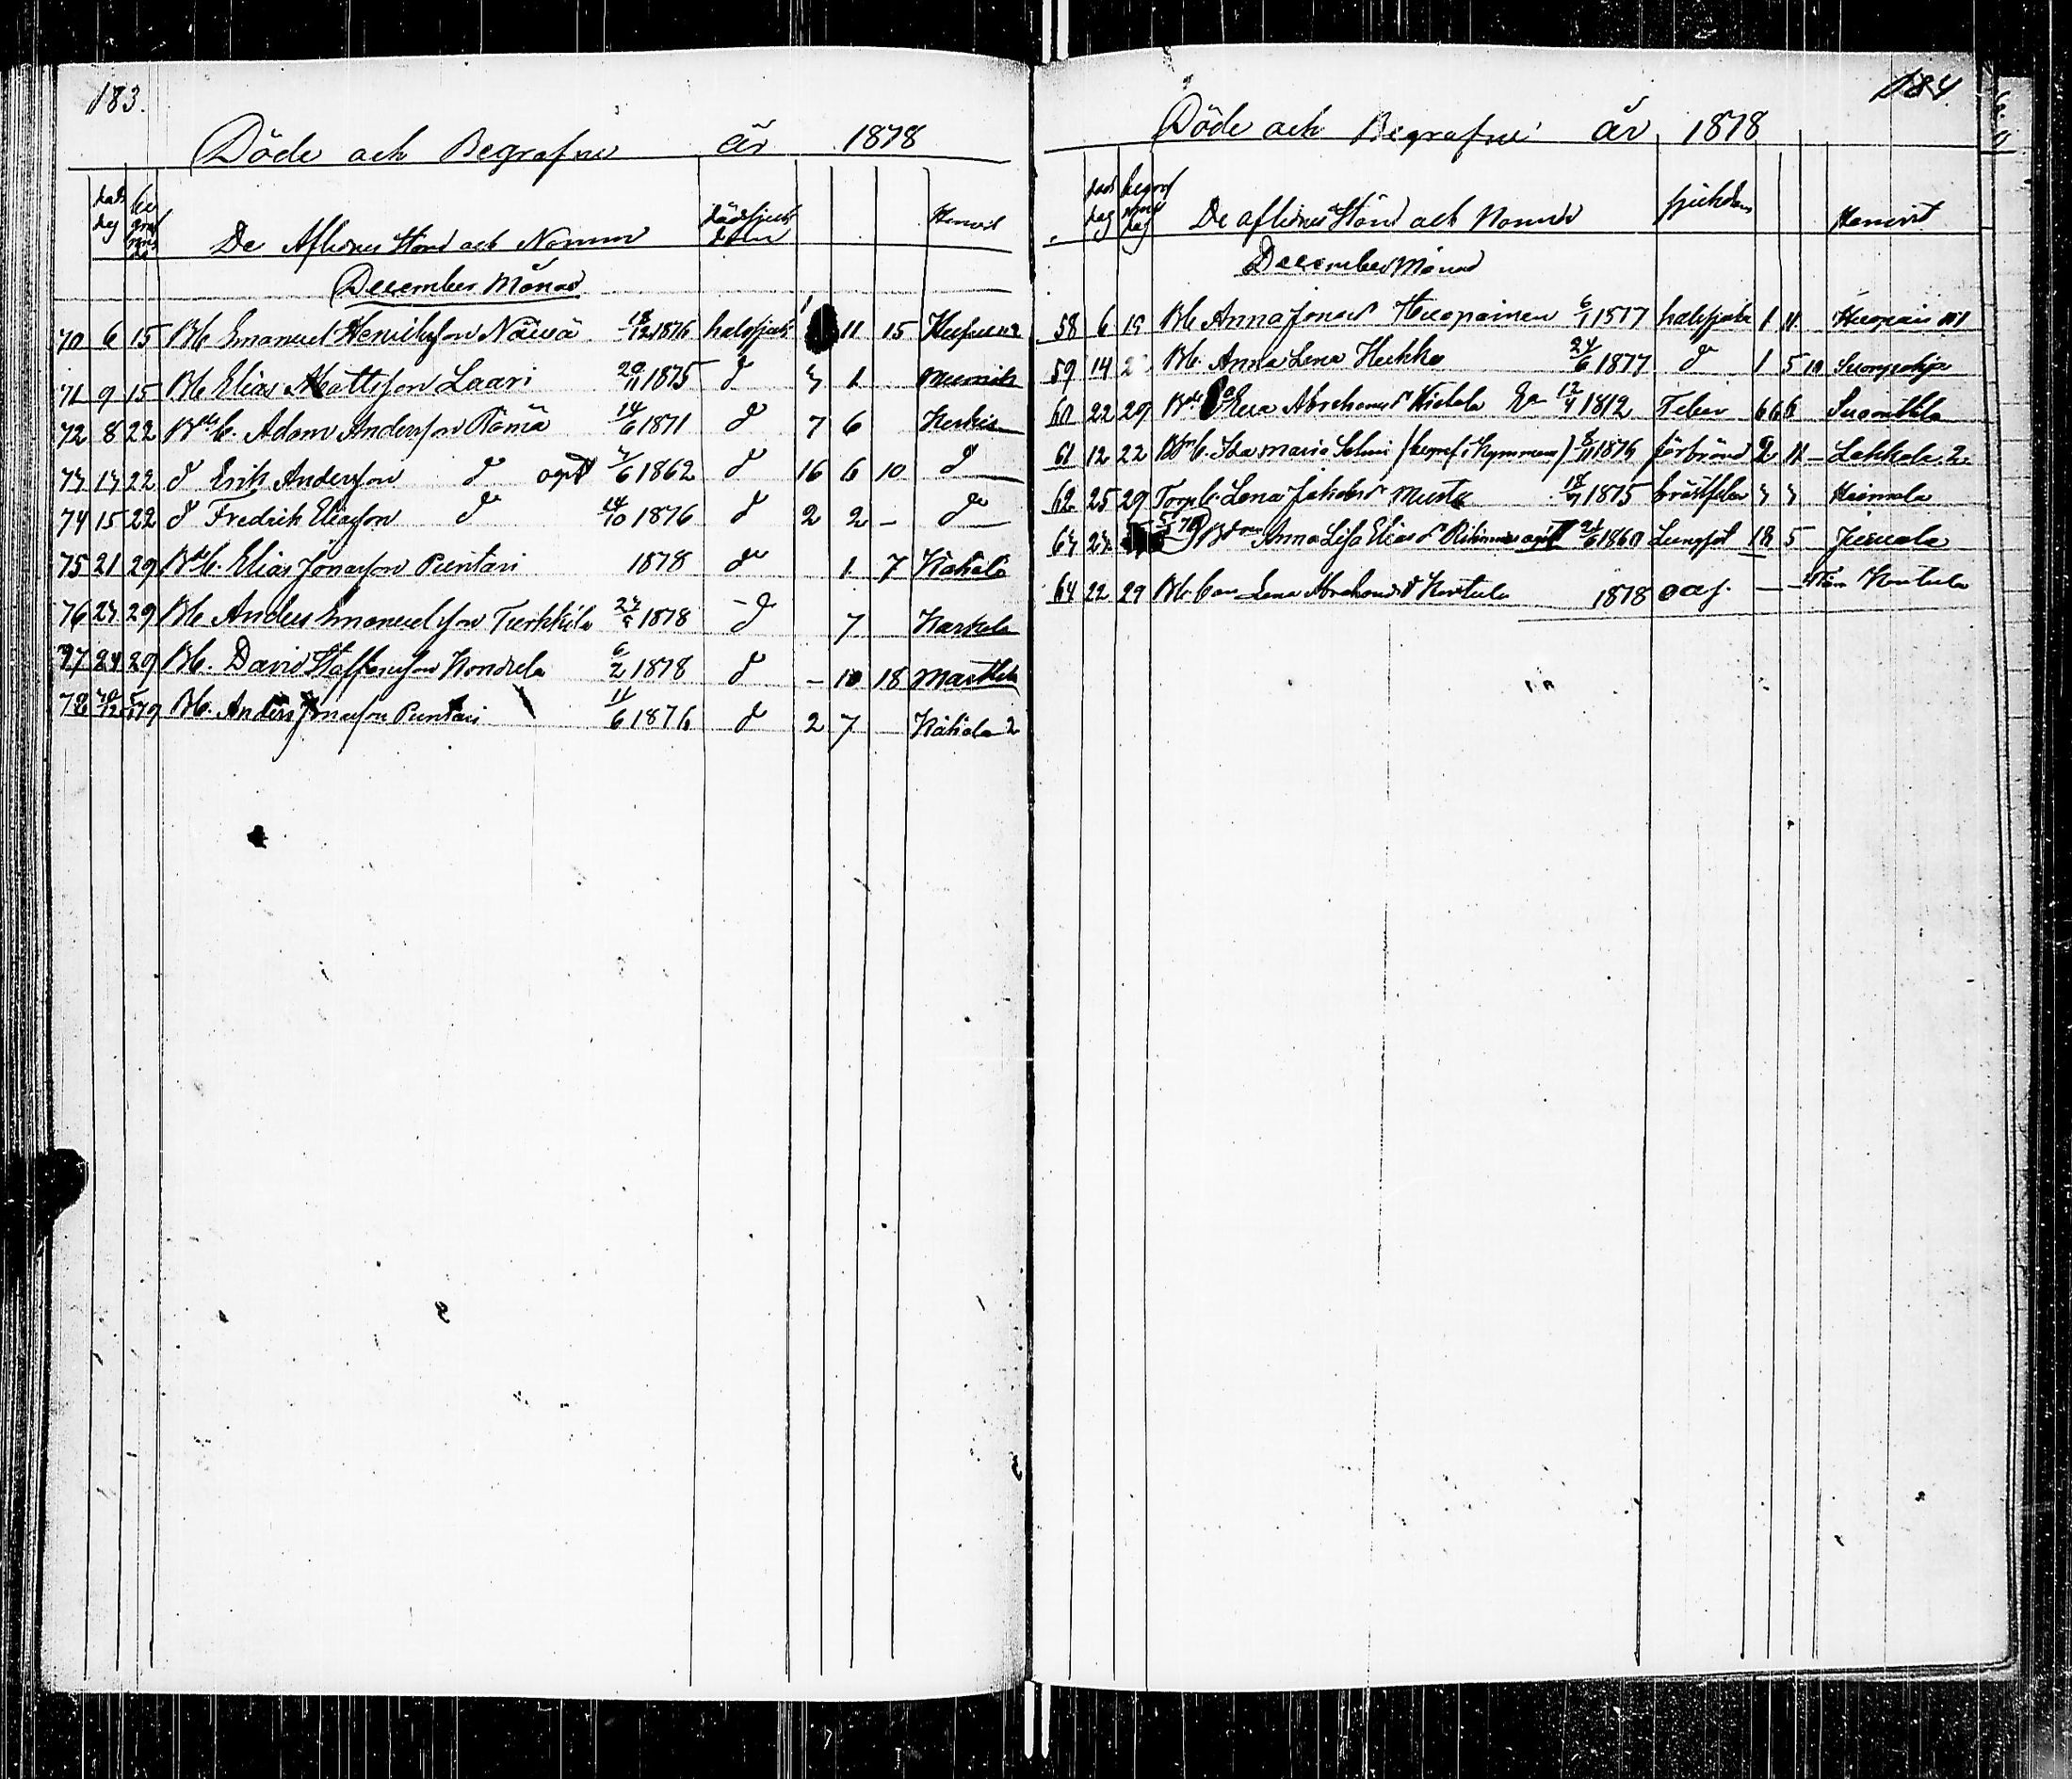 183.
Döde och Begrafne år 1878
död dag be graf nings dag De Aflidnes Stånd och Namn dödssjuk dom Hemvist
December Månad
70 6 15 Bb Emanuel Henriksson Näivä 18/12 1876 halssjuk 1 11 15
71 9 15 Bb Elias Mattsson Laari 20/11 1875 d° 3 1
72 8 22 Bdeb. Adam Andersson Römä 14/6 1871 d° 7 6 Kerkis
73 13 22 d° Erik Andersson d° ogift 3/6 1862 d° 16 6 10 d°
74 15 22 d° Fredrik Eliasson d° 14/10 1876 d° 2 2 – d°
75 21 29 Bdeb. Elias Jonasson Puntari 1878 d° 1 7 Kähälä
76 23 29 Bb Anders Emanuelsson Turkkila 1878 d° 7
77 24 29 Bb. David Staffansson Kondrela 6/2 1878 d° – 10 18 Marttila
78 30/12 5/1 79 Bb. Anders Jonasson Puntari 11/6 1876 d° 2 7 Kähälä 2
184
Döde och Begrafne år 1878
död dag begraf nings dag De aflidnes Stånd och Namn sjukdom Hemvist
December Månad
58 6 15 Bb Anna Jonasd° Huopainen 6/1 1877 halssjuka 1 11
59 14 2 Bb. Anna Lena Hukka 24/6 1877 d° 1 5 10 Suurpohja
60 22 29 Eva Abrahamsd° Kietala Ea 12/4 1812 Feber 66 6
61 12 22 Ida Maria Salmi (begraf. i Kymmene) 8/11 1876 förbränd 2 11 – Lakkala 2
62 25 29 Torp b. Lena Jakobsd° Musta 18/9 1875 bröstfeber 3 3 Heimala
63 23 5/1 79 Anna Lisa Eliasd° ogift 24/6 1860 Lungsot 18 5
64 22 29 Bb. barn Lena Abrahamsd° Kortula 1878 oaf. — — Kortula